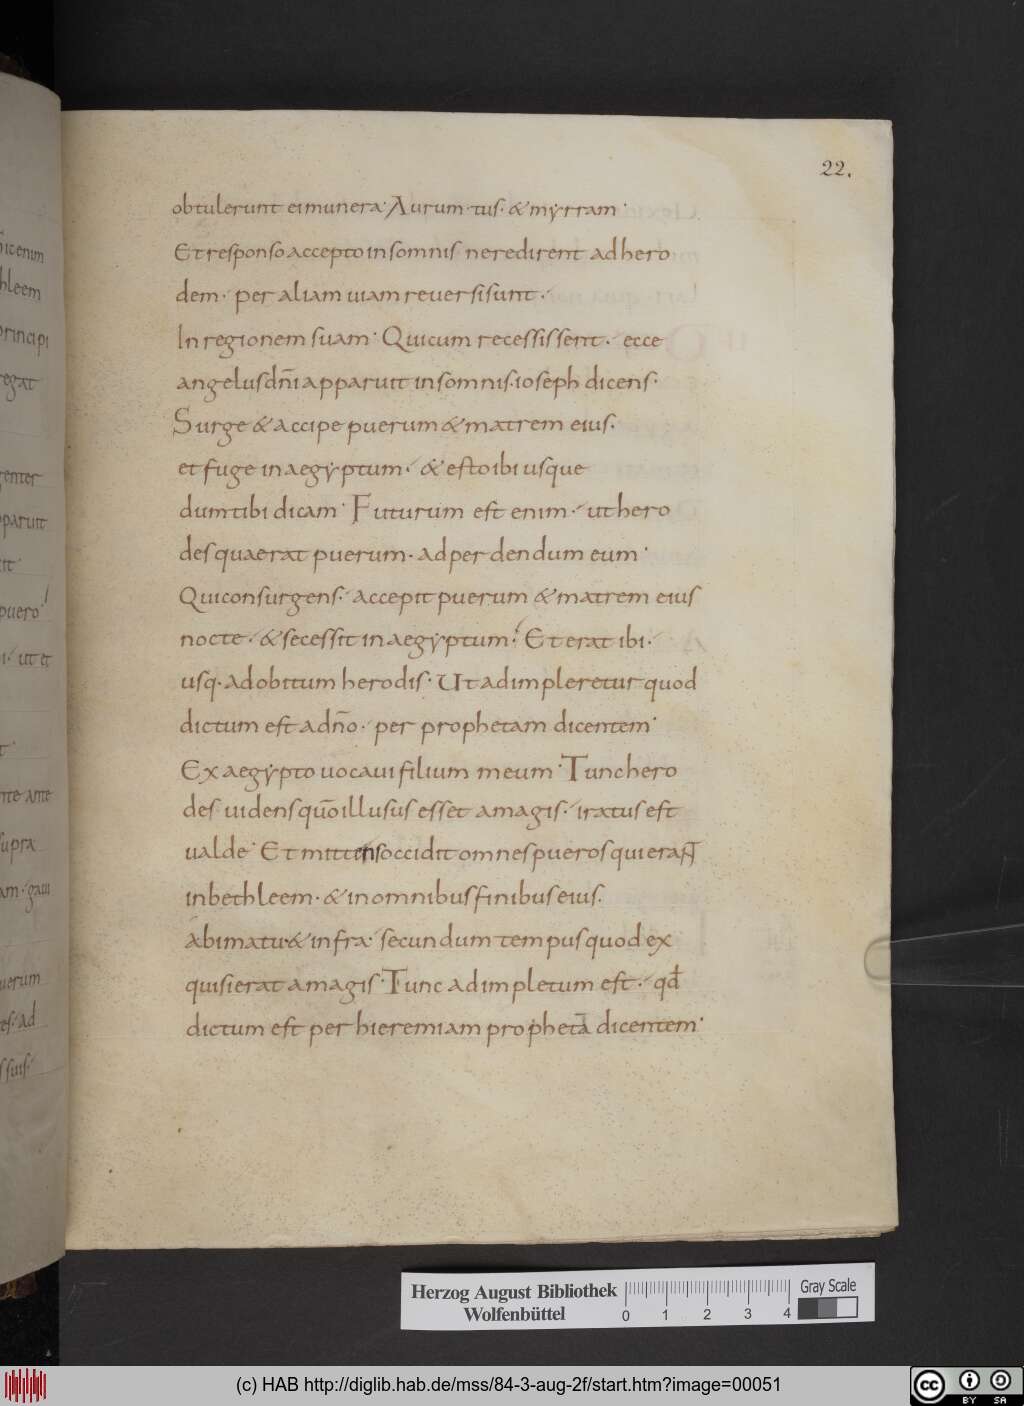 22.
obtulerunt ei munera· Aurum· tus· & myrram·
Et responso accepto in somnis ne redirent ad hero
dem· per aliam uiam reuersi sunt·
In regionem suam· Qui cum recessissent· ecce
angelus dn̄i apparuit in somnis· ioseph dicens·
Surge & accipe puerum & matrem eius·
et fuge in aegyptum· & esto ibi usque
dum tibi dicam· Futurum est enim· ut hero
des quaerat puerum· ad perdendum eum·
Qui consurgens· accepit puerum & matrem eius
nocte· & secessit in aegyptum· Et erat ibi·
usq· ad obitum herodis· Ut adimpleretur quod
dictum est a dn̄o· per prophetam dicentem·
Ex aegypto uocaui filium meum· Tunc hero
des uidens qūo illusus esset a magis· iratus est
ualde· Et mittens occidit omnes pueros qui erant
in bethleem· & in omnibus finibus eius·
A bimatu & infra· secundum tempus quod ex
quisierat a magis· Tunc adimpletum est· qđ
dictum est per hieremiam prophetā dicentem·
Herzog August Bibliothek
Wolfenbüttel
0 1 2 3 4
Gray Scale
(c) HAB http://diglib.hab.de/mss/84-3-aug-2f/start.htm?image=00051
cc BY SA